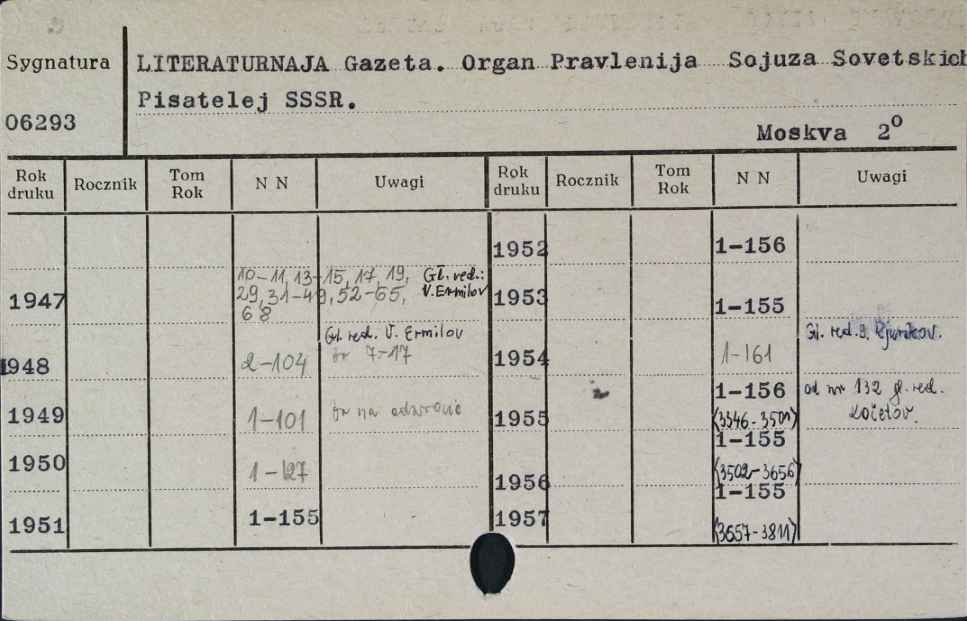 Sygnatura
LITERATURNAJA Gazeta. Organ Pravlenija Sojuza Sovetskich
Pisatelej SSSR.
06293
Moskva 2º
Rok druku Rocznik Tom Rok N N Uwagi Rok druku Rocznik Tom Rok N N Uwagi
1952 1-156
1947 10-11, 13-15, 17, 19, Gł. red.:
29, 31-49, 52-65, V. Ermilov
68
1953 1-155
Gł. red. V. Ermilov
1948 2-104 br 7-17
1954 1-161 Gł. red. B. Rjurikov.
1949 1-101 br na odwrocie
1955 1-156 od nr 132 gł. red.
(3346-3501) Kočetov.
1950 1-127
1956 1-155
(3502-3656)
1951 1-155
1957 1-155
(3657-3811)